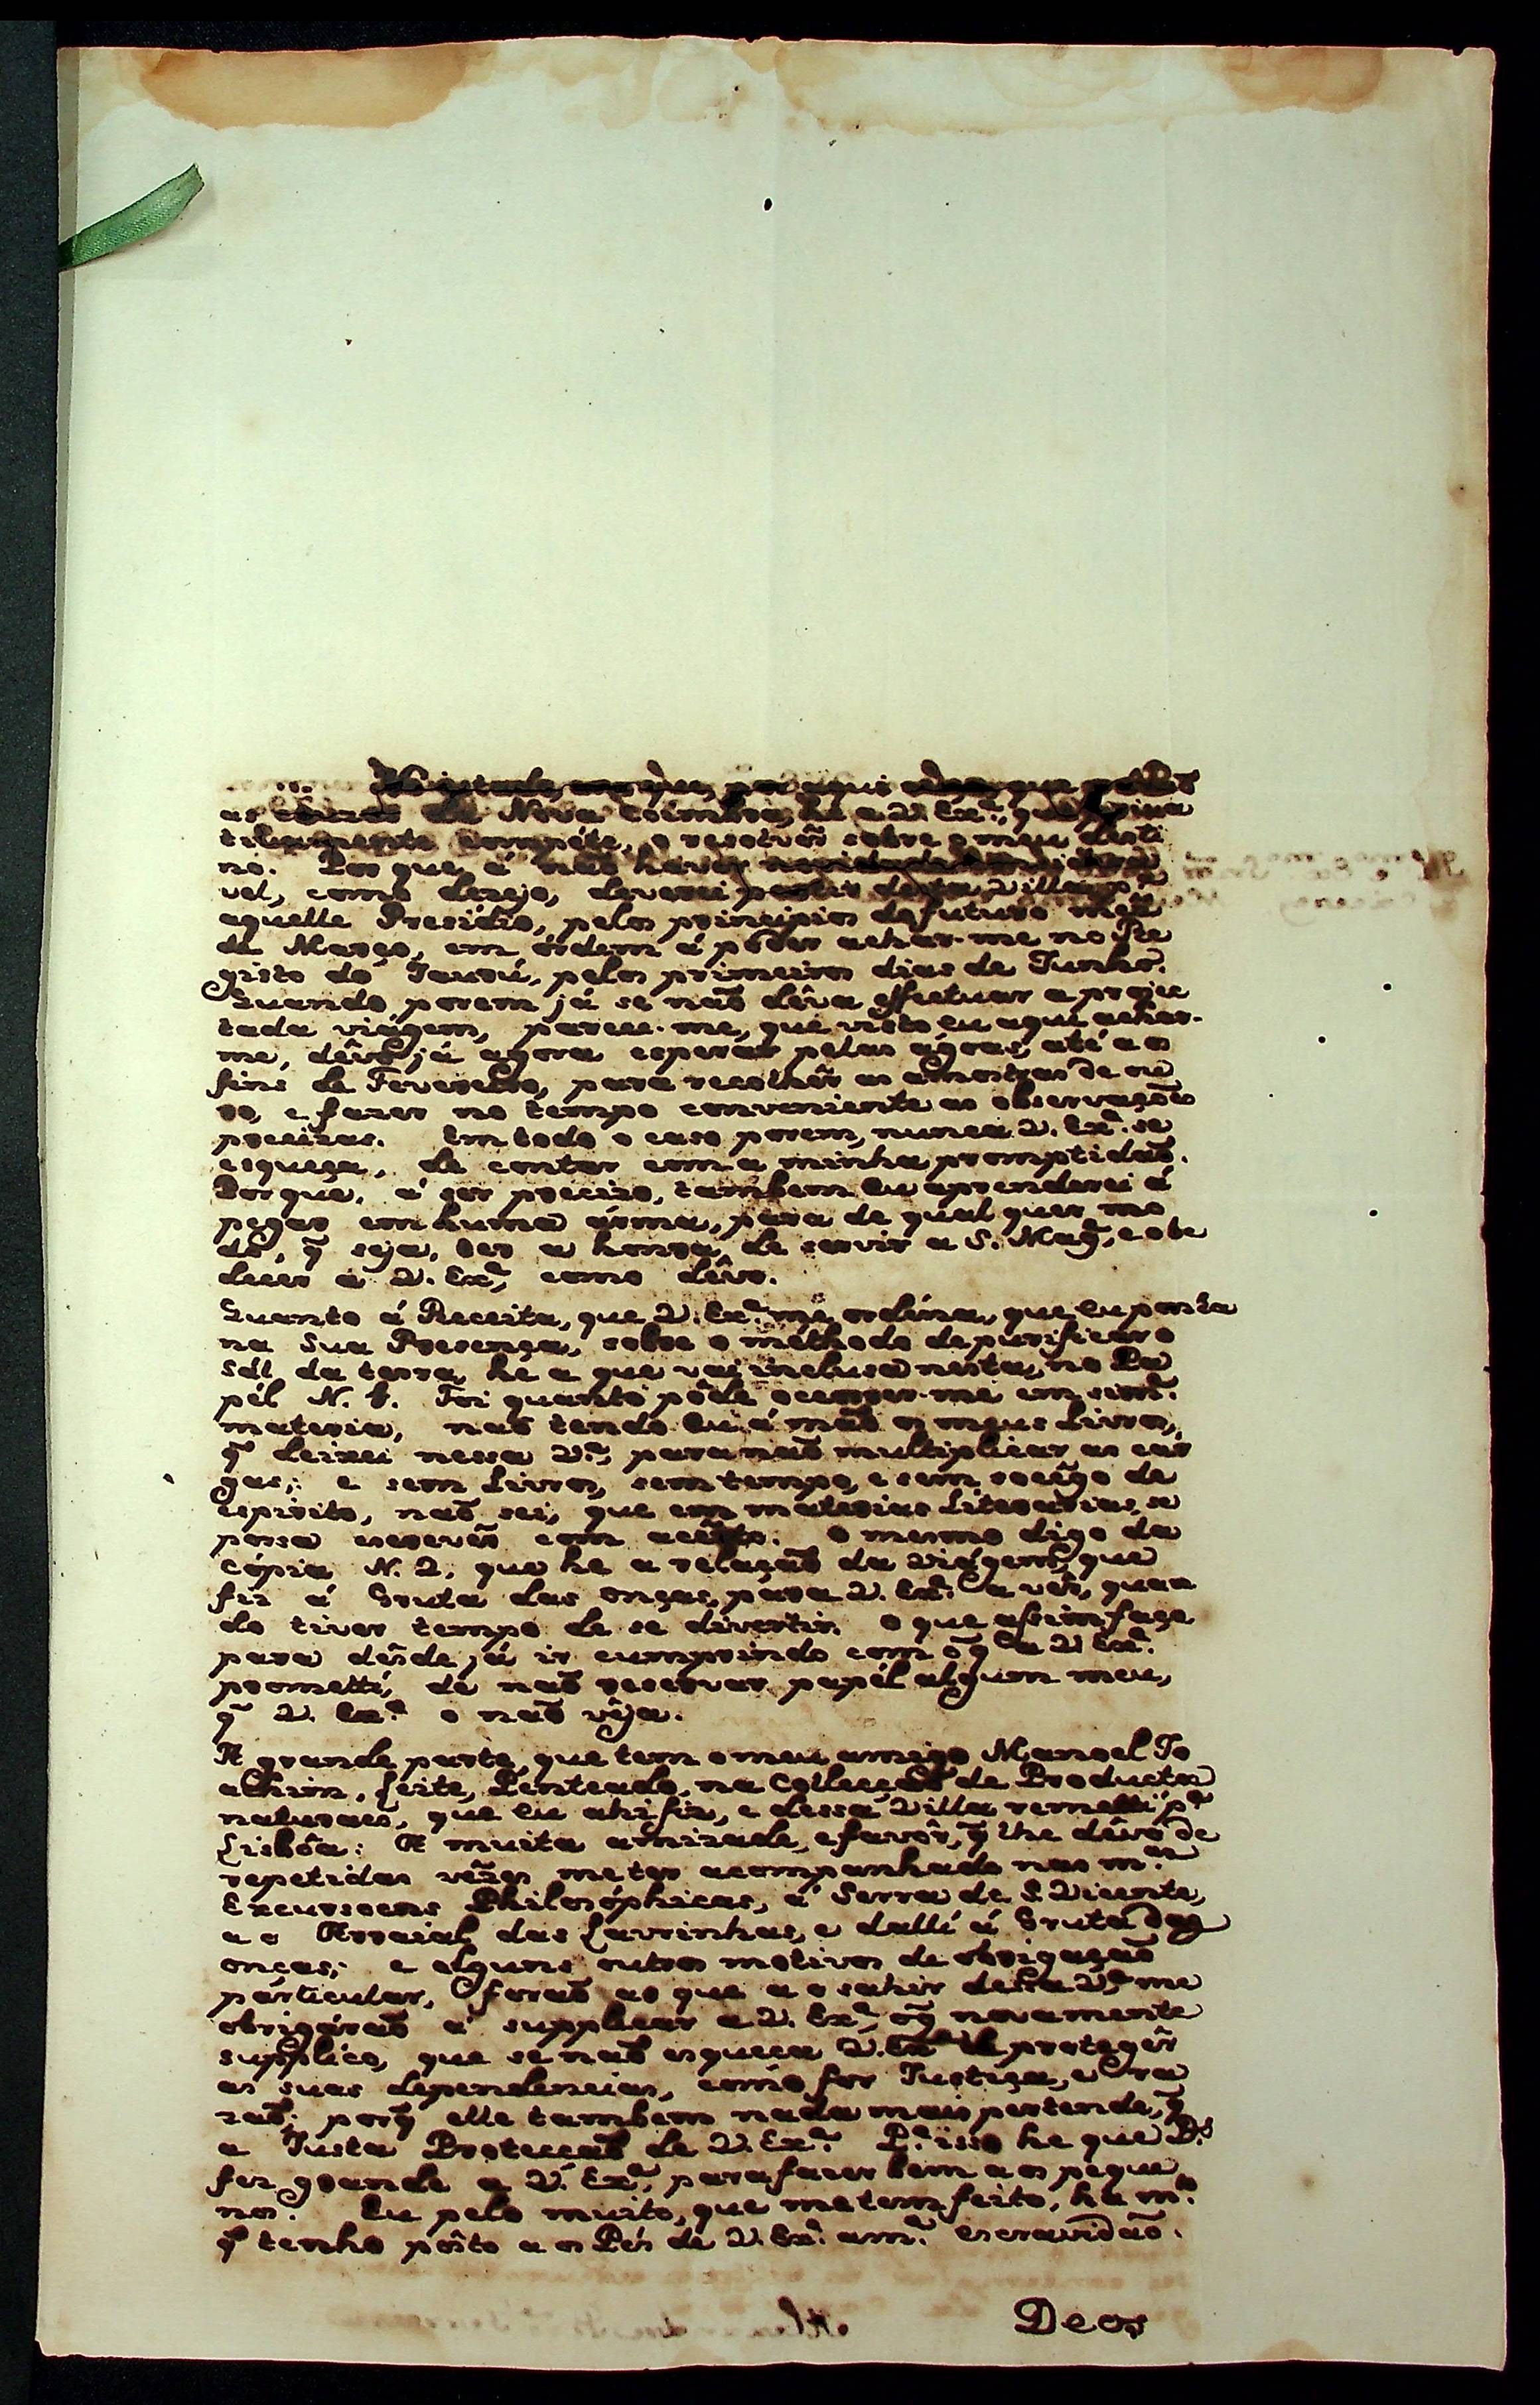 No estado, em que, por aqui
as de Nova Coimbra, he a V. Ex.ª, que
compéte, o resolvêr sobre o meu desti
no. Por que á naõ haver novidade
vel, como dezejo, deverei partir desta Villa p.ª
aquelle Presidio, pelos principios do futuro mez
de Março, em órdem á podêr achar-me no Re
gisto do Taurú, pelos primeiros dias de Junho.
Quando porem já se naõ dêva effectuar a projec
tada viágem, parece-me, que visto eu aqui achar-
me, dêvo já agora esperar pelas agoas, até aos
fins de Fevereiro, para recolhêr as amostras de ou
ro, e fazer no tempo conveniente as observaçoẽs
precizas. Em todo o caso porem, nunca V. Ex.ª se
esqueça, de contar com a minha promptidaõ.
Porque, á ser precizo, tambem eu aprenderei á
pegar em huma árma, para de qualquer mo
do, q̃ seja, ter a honra de servir a S. Mag.ᵉ, e obe
decer a V. Ex.ª, como dêvo.
Quanto á Receita, que V. Ex.ª me ordéna, que eu ponha
na Sua Presença, sobre o méthodo de purificar o
sál da terra, he a que vai inclusa nesta, no Pa
pél N. 1. Foi quanto póde ocorrer-me em sim.ᵉ
materia, naõ tendo eu á maõ os meus Livros,
q̃ deixei nessa V.ª, para naõ multiplicar as car
gas; e sem Livros, sem tempo, e sem socêgo de
espirito, naõ sei, que em materias Literarias, se
possa escrevêr com acêrto. O mesmo digo da
cópia N. 2, que he a relaçaõ da Viágem, que
fiz á Gruta das onças, para V. Ex.ª a vêr, quan
do tiver tempo de se divertir. O que assim faço
para dêsde já ir cumprindo com o q̃ a V. Ex.ª
prometti, de naõ reservar papél algum meu,
q̃ V. Ex.ª o naõ vêja.
A grande parte, que tem o meu amigo Manoel Jo
achim, Leite, Penteado, na Collecçaõ de Productos
naturaes, que eu ahi fiz, e dessa Villa remetti p.ª
Lisbôa: A muita amizade, e favôr, q̃ lhe dêvo de
repetidas vêzes me ter acompanhado nas m.ᵃˢ
Excursoens Philosóphicas, á Serra de S. Vicente,
ao Arraial das Lavrinhas, e dalli á Gruta das
onças; e alguns outros motivos de obrigaçaõ
párticular, foraõ as que ao sahir dessa V.ª me
obrigáraõ á supplicar a V. Ex.ª, o q̃ novamente
supplíco, que se naõ esqueça V. Ex.ª de protegêr
as suas dependencias, como for Justiça, e ra
zaõ; porq̃ elle tambem nada mais pertende, q̃
a Justa Protecçaõ de V. Ex.ª P.ʳ isso he que D.ˢ
fez grande a V. Ex.ª, para fazer bem aos peque
nos. Eu pelo muito, que me tem feito, ha m.ᵗᵒ
q̃ tenho pôsto aos Pés de V. Ex.ª a m.ª escravidaõ.
Deos